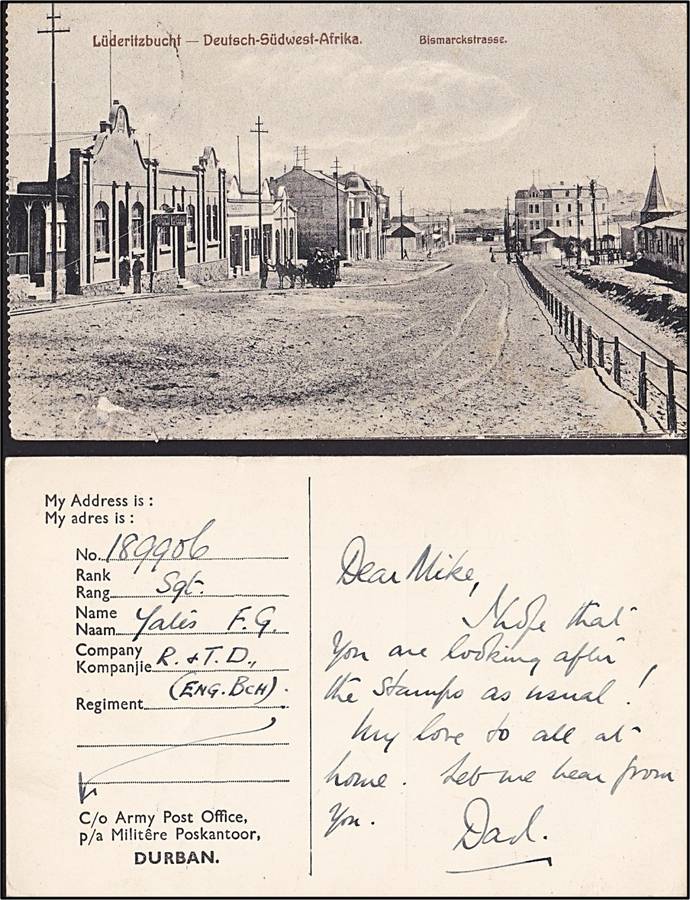 Lüderitzbucht — Deutsch-Südwest-Afrika. Bismarckstrasse.
My Address is :
My adres is :
No. 189906
Rank
Rang Sgt.
Name
Naam Yates F. G.
Company
Kompanjie R. & T. D.,
(ENG. BCH).
Regiment
C/o Army Post Office,
p/a Militêre Poskantoor,
DURBAN.
Dear Mike,
I hope that
you are looking after
the stamps as usual !
My love to all at
home. Let me hear from
you.
Dad.